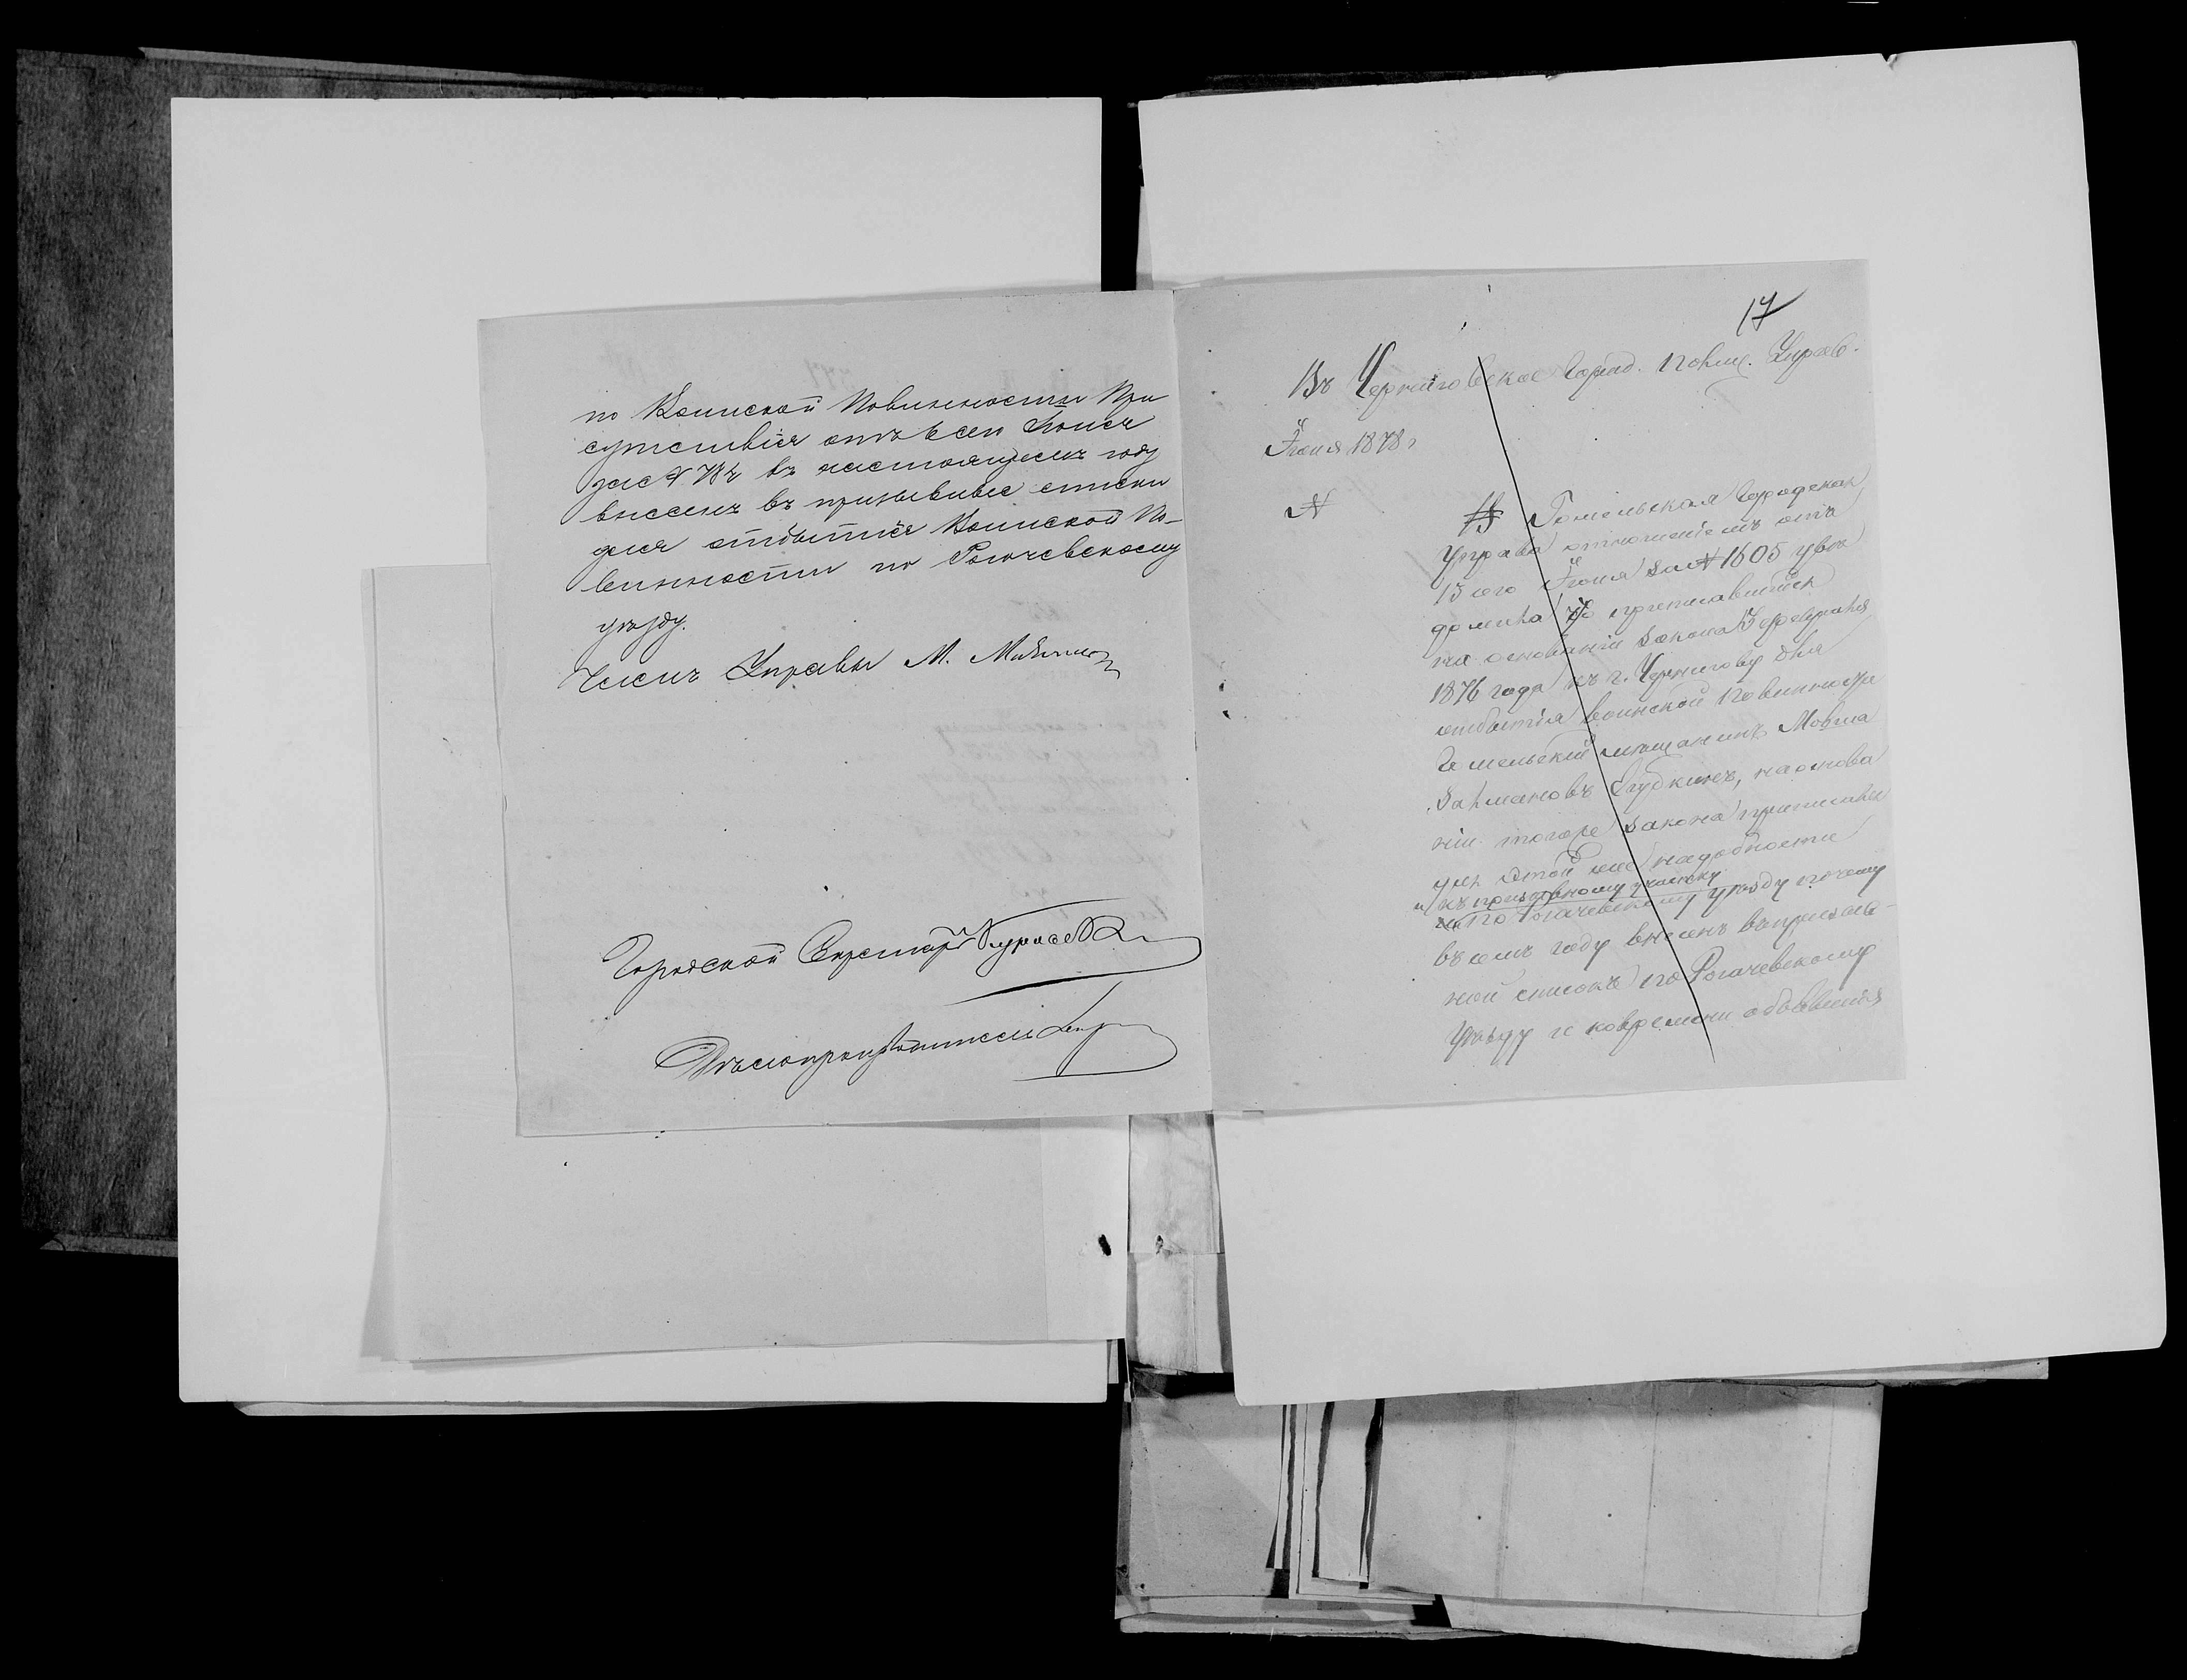 по Воинской Повинности При
сутствія отъ 6 сего Іюня
за № 784 въ настоящемъ году
внесенъ въ призывные списки
для отбытія Воинской По-
винности по Рогачевскому
уѣзду.
Членъ Управы М.
Городской Секретарь
Дѣлопроизводитель
17
Въ Черниговское Город. Полиц. Управ.
Іюня 1878 г
№
Гомельская Городская
Управа отношеніемъ отъ
13 сего Іюня за № 1605 увѣ
домила, что приписавшійся
на основаніи закона 3 февраля
1876 года къ г. Чернигову для
отбытія воинской повинности
Гомельскій мѣщанинъ Мовша
Залмановъ Глубкинъ, на основа
ніи того же закона приписанъ
для этой же надобности
и къ призывному участку
по Рогачевскому уѣзду почему
въ семъ году внесенъ въ призыв-
ной списокъ по Рогачевскому
Уѣзду и ко времени объявленія